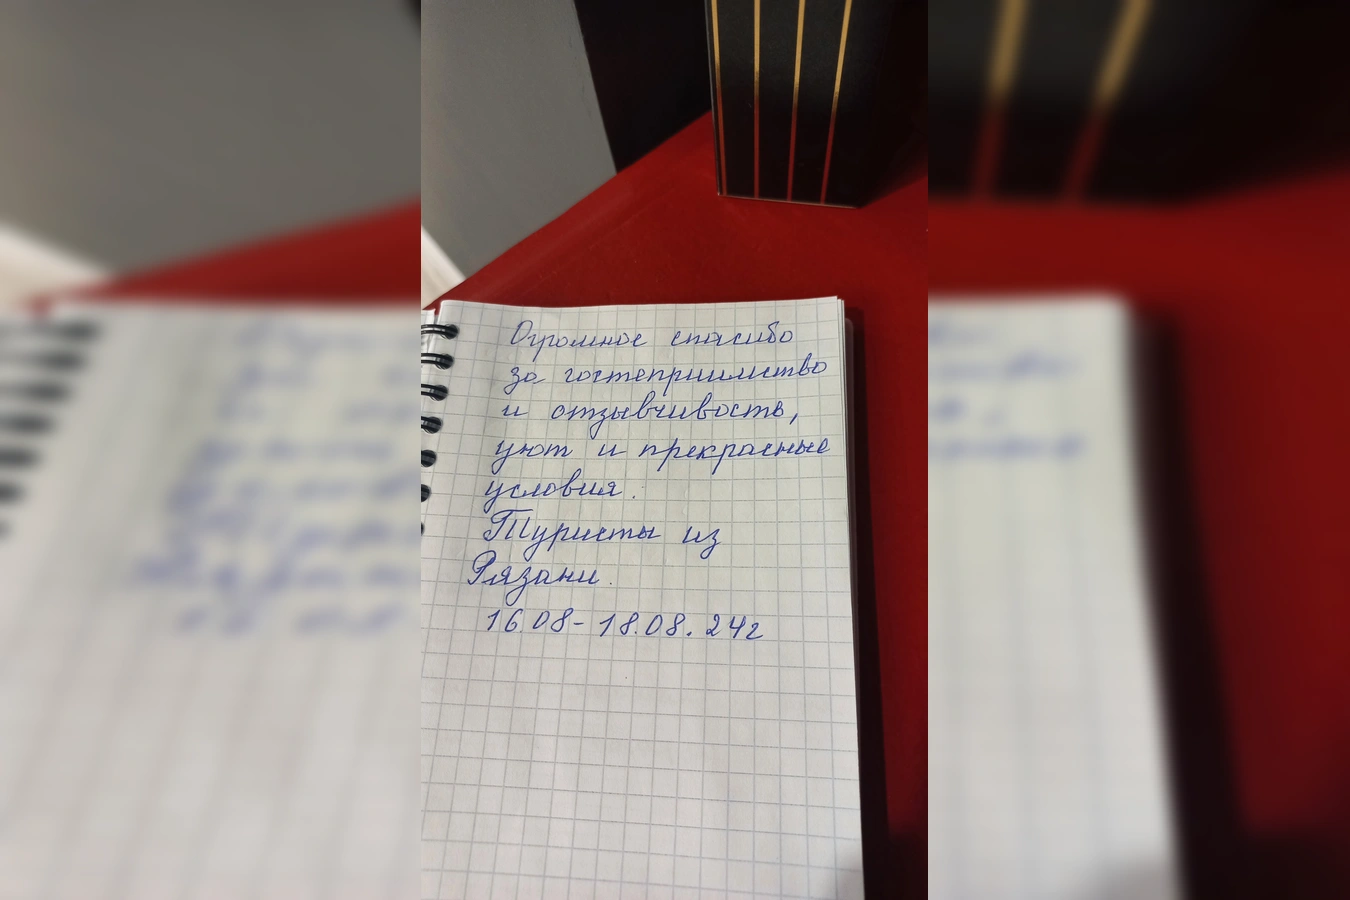 Огромное спасибо
за гостеприимство
и отзывчивость,
уют и прекрасные
условия.
Туристы из
Рязани.
16.08- 18.08. 24г